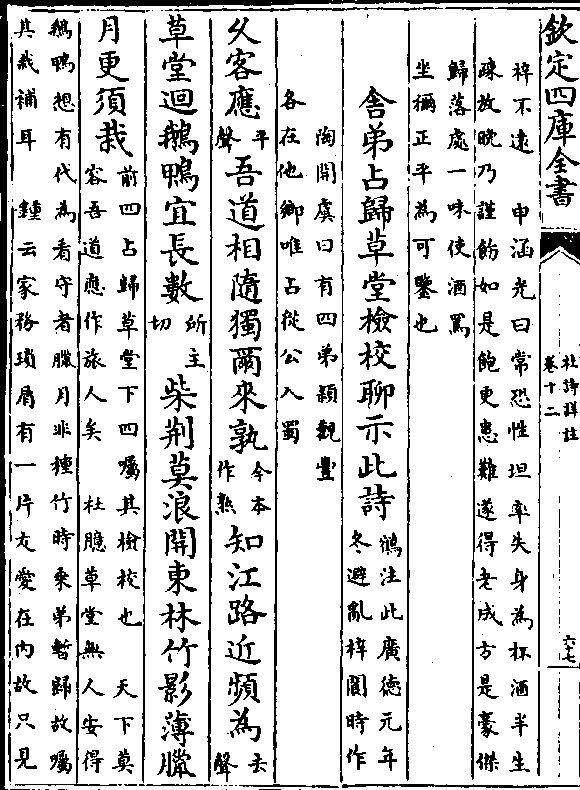 欽定四庫全書
杜詩詳註
卷十二
六十七
梓不遠 申涵光曰常恐性坦率失身為杯酒半生
疎放晚乃謹飭如是飽更患難遂得老成方是豪傑
歸落處一味使酒罵
坐禰正平為可鑒也
舍弟占歸草堂檢校聊示此詩
鶴注此廣德元年
冬避亂梓閬時作
陶開虞曰有四弟穎觀豐
各在他鄉唯占從公入蜀
久客應平聲吾道相隨獨爾來孰今本作熟知江路近頻為去聲
草堂迴鵝鴨宜長數所主切柴荆莫浪開東林竹影薄臘
月更須栽
前四占歸草堂下四囑其檢校也 天下莫
容吾道應作旅人矣 杜臆草堂無人安得
鵝鴨想有代為看守者臘月非種竹時乘弟暫歸故囑
其栽補耳 鍾云家務瑣屑有一片友愛在内故只見